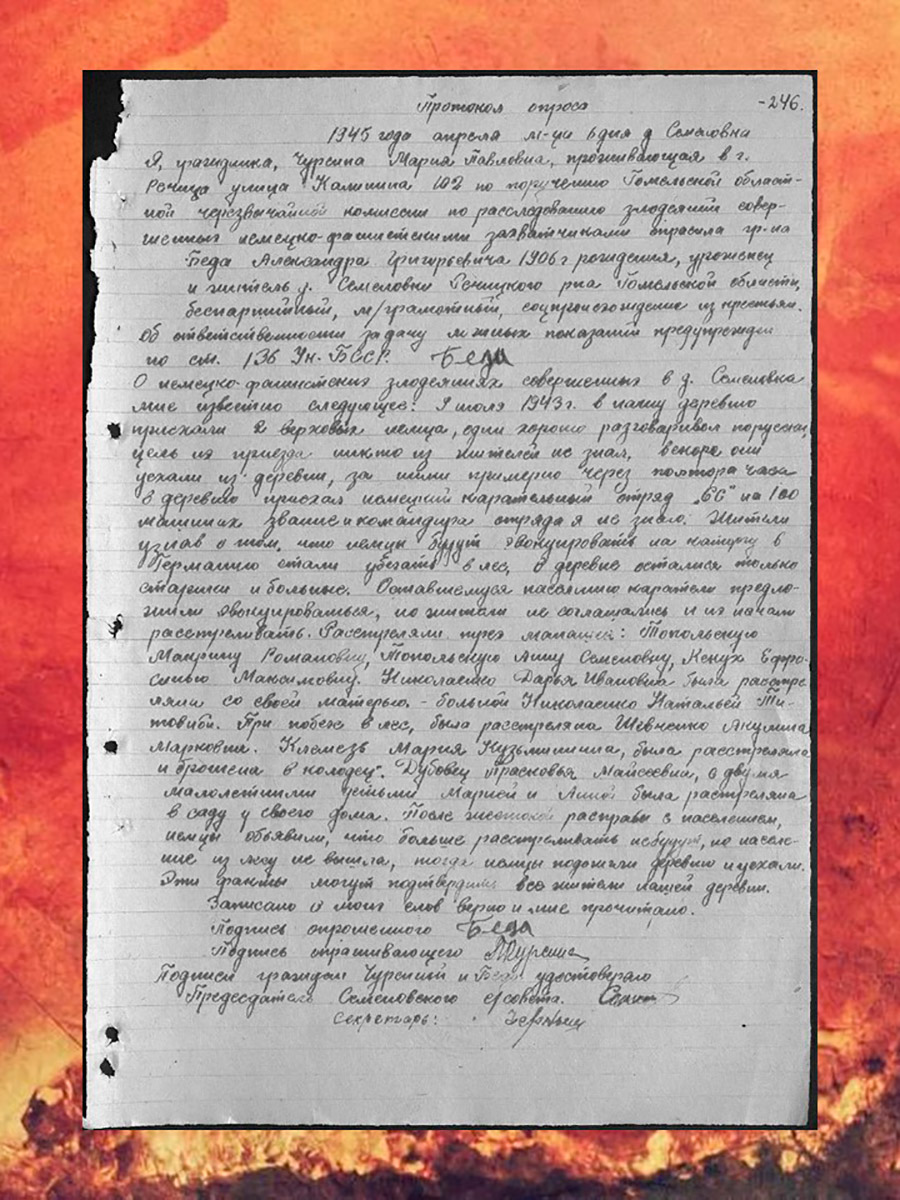 -246.
Протокол опроса
1945 года апреля м-ца 6 дня д Семеловка
Я, гражданка, Чурсина Мария Павловна, проживающая в г.
Речица улица Калинина 102 по поручению Гомельской област-
ной черезвычайной комиссии по расследованию злодеяний совер-
шенных немецко-фашистскими захватчиками опросила гр-на
Беда Александра Григорьевича 1906 г рождения, уроженец
и житель д. Семеловки Речицкого р-на Гомельской области,
беспартийный, м/грамотный, соцпроисхождение из крестьян.
Об ответственности за дачу ложных показаний предупрежден
по ст. 136 Ук. БССР. Беда
О немецко-фашистских злодеяниях совершенных в д. Семеловка
мне известно следующее: 9 июля 1943 г. в нашу деревню
приехали 2 верховых немца, один хорошо разговаривал порусски,
цель их приезда никто из жителей не знал, вскоре они
уехали из деревни, за ними примерно через полтора часа
в деревню приехал немецкий карательный отряд „СС" на 100
машинах звание и командира отряда я не знаю. Жители
узнав о том, что немцы будут эвокуировать на каторгу в
Германию стали убегать в лес, в деревне остались только
старики и больные. Оставшемуся населению каратели предло-
жили эвокуироваться, но жители не соглашались и их начали
расстреливать. Расстреляли трех: Топольскую
Макрину Романовну, Топольскую Анну Семеловну, Кенух Ефро-
синью Максимовну. Николаенко Дарья Ивановна была расстре
ляна со своей матерью - больной Николаенко Натальей Ти-
товной. При побеге в лес, была расстреляна Шевченко Акулина
Марковна. Клемезь Мария Кузьминична, была расстреляна
и брошена в колодец. Дубовец Прасковья Майсеевна, с двумя
малолетними детьми Марией и Анной была растреляна
в саду у своего дома. После жестокой расправы с населением,
немцы объявили, что больше расстреливать небудут, но населе-
ние из лесу не вышла, тогда немцы подожгли деревню и уехали.
Эти факты могут подтвердить все жители нашей деревни.
Записано с моих слов верно и мне прочитано.
Подпись опрошенного Беда
Подпись опрашивающего МЧурсина
Подписи граждан Чурсиной и Беда удостоверяю
Председатель Семеловского с/совета.
Секретарь: